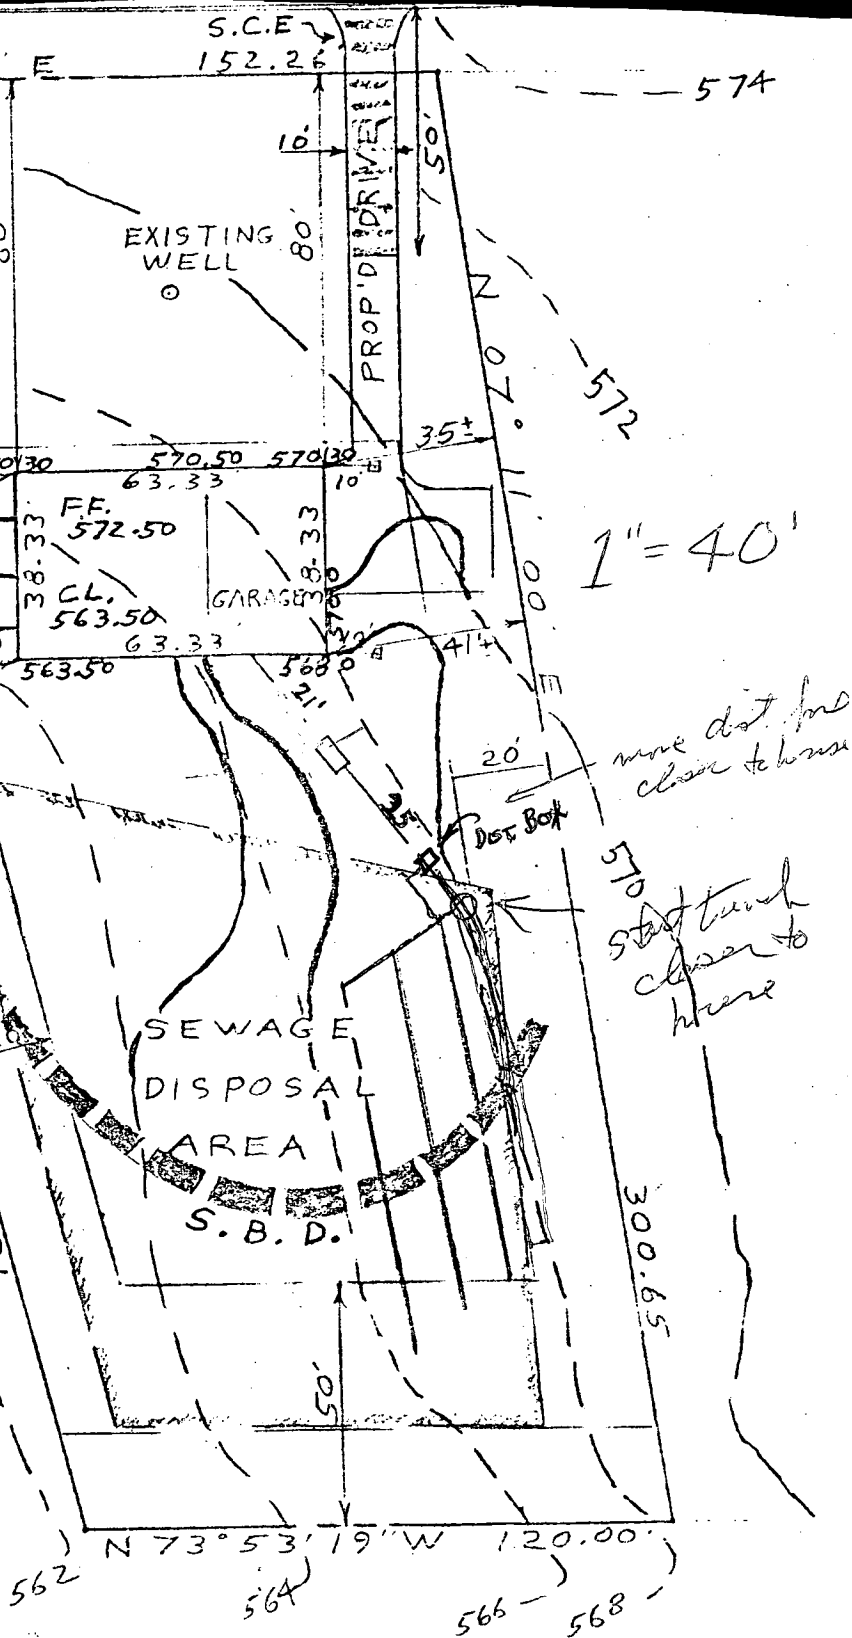 S.C.E
E
152.26
574
10'
50'
80'
PROP'D DRIVE
EXISTING
WELL
N 07° 11' 00 E
572
35±
570.50
63.33
10'
F.F.
572.50
38.33
38.33
1"=40'
C.L.
563.50
GARAGE
63.33
563.50
41'±
21'
20'
move dist box
closer to house
35'
DIST. BOX
570
start trench
closer to
house
SEWAGE
DISPOSAL
AREA
S.B.D.
300.65
50'
N 73° 53' 19" W
120.00'
562
564
566
568